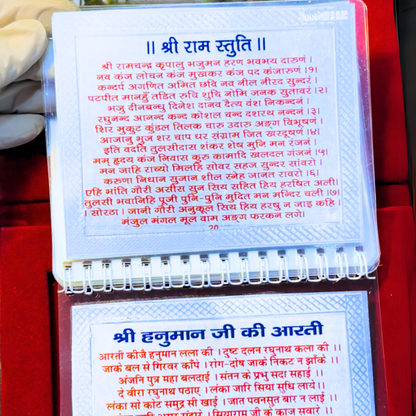 ॥ श्री राम स्तुति ॥
श्री रामचन्द्र कृपालु भजुमन हरण भवभय दारुणं ।
नव कंज लोचन कंज मुखकर कंज पद कंजारुणं ।१।
कन्दर्प अगणित अमित छवि नव नील नीरद सुन्दरं ।
पटपीत मानहुँ तडित रुचि शुचि नोमि जनक सुतावरं ।२।
भजु दीनबन्धु दिनेश दानव दैत्य वंश निकन्दनं ।
रघुनन्द आनन्द कन्द कोशल चन्द दशरथ नन्दनं ।३।
शिर मुकुट कुंडल तिलक चारु उदारु अङ्ग विभूषणं ।
आजानु भुज शर चाप धर संग्राम जित खरदूषणं ।४।
इति वदति तुलसीदास शंकर शेष मुनि मन रंजनं ।
मम् हृदय कंज निवास कुरु कामादि खलदल गंजनं ।५।
मन जाहि राच्यो मिलहि सोवर सहज सुन्दर सांवरो ।
करुणा निधान सुजान शील स्नेह जानत रावरो ।६।
एहि भांति गौरी असीस सुन सिय सहित हिय हरषित अली।
तुलसी भवानिहि पूजी पुनि-पुनि मुदित मन मन्दिर चली ।७।
। सोरठा । जानी गौरी अनुकूल सिय हिय हरषु न जाइ कहि ।
मंजुल मंगल मूल वाम अङ्ग फरकन लगे।
20
श्री हनुमान जी की आरती
आरती कीजै हनुमान लला की । दुष्ट दलन रघुनाथ कला की ।
जाके बल से गिरवर काँपे । रोग-दोष जाके निकट न झाँके ।
अंजनि पुत्र महा बलदाई । संतन के प्रभु सदा सहाई ।
दे वीरा रघुनाथ पठाए । लंका जारि सिया सुधि लाये ।
लंका सो कोट समुद्र सी खाई । जात पवनसुत बार न लाई ।